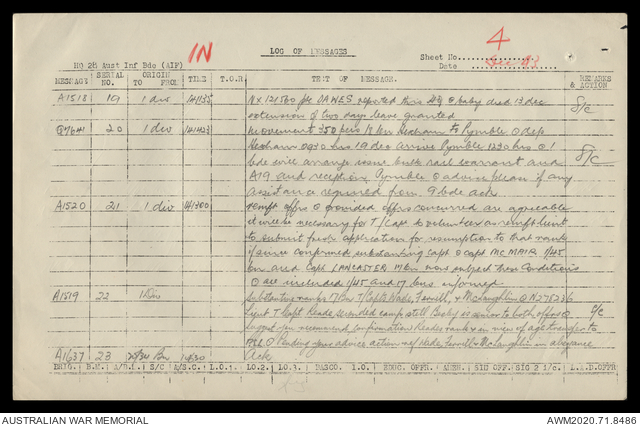 IN
LOG OF MESSAGES
4
HQ 28 Aust Inf Bde (AIF)
Sheet No
Date Dec 43
MESSAGE SERIAL NO. ORIGIN TO FROM TIME T.O.R TEXT OF MESSAGE. REMARKS & ACTION
A1518 19 1 div 141135 NX 121560 pte DAWES reported this HQ O baby died 13 dec S/C
extension of two days leave granted
Q7641 20 1 div 141423 Movement 350 pers 17 Bn Hexham to Pymble O dep
Hexham 0930 hrs 19 dec arrive Pymble 1230 hrs O 1 S/C
bde will arrange issue bulk rail warrant and
A19 and reception Pymble O advise please if any
assistance required from 9 bde ack
A1520 21 1 div 141300 offrs O provided offrs concurred are agreeable
it will be necessary for T/Capt to volunteer as rempt Lieut
to submit fresh application for resumption to that rank
if since confirmed substantive capt O Capt McMAIR 1/45
Bn and Capt LANCASTER 17 Bn now subject these conditions
O are included 1/45 and 17 bns informed
A1519 22 1 Div Substantive ranks 17 Bn T/Capts Wade, Ferrell, & McLaughlin O N278236 S/C
Lieut T/Capt Reade seconded camp staff is senior to both offrs O
Suggest you recommend confirmation Reades rank & in view of age transfer to
O Pending your advice action ref Wade, Ferrell & McLaughlin in abeyance
A1637 23 Bn 1430 Ack
BRIG. B.M. A/B.M. S/C A/S.C. L.O.1. LO.2. LO.3. BASCO. I.O. EDUC. OFFR. AMEN. SIG OFF. SIG 2 i/c. L.A.D.OFFR
AUSTRALIAN WAR MEMORIAL
AWM2020.71.8486